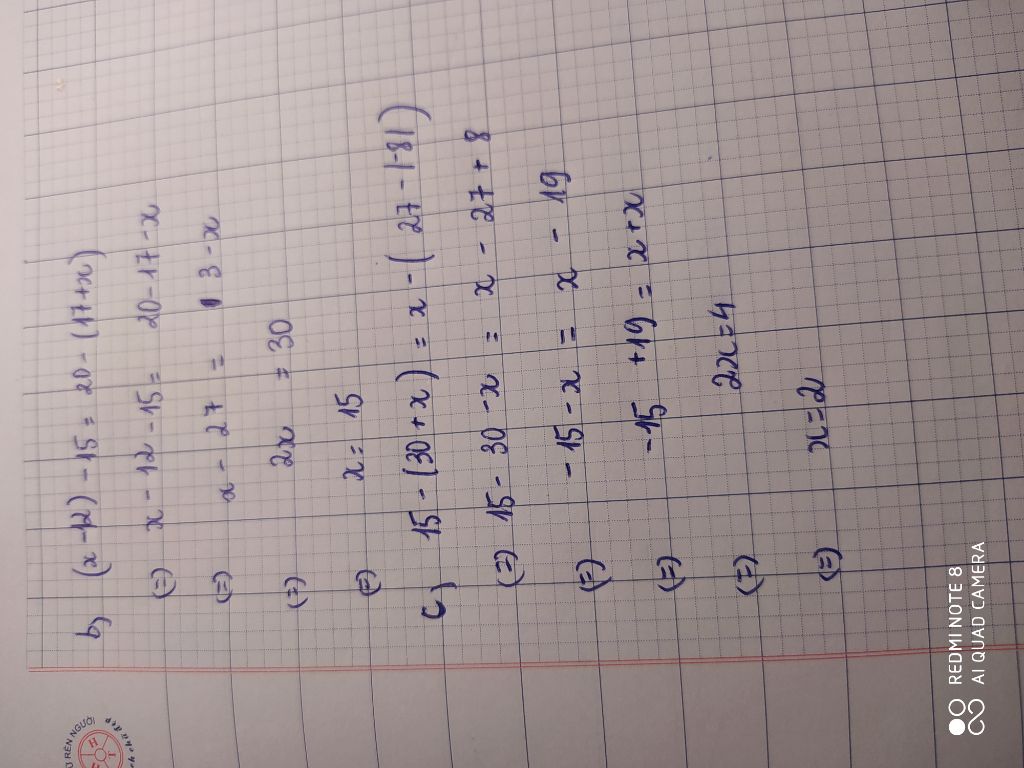 b, (x - 12) - 15 = 20 - (17+x)
(=) x - 12 - 15 = 20 - 17 - x
(=) x - 27 = 3 - x
(=) 2x = 30
(=) x = 15
c, 15 - (30 + x) = x - (27 - |-8|)
(=) 15 - 30 - x = x - 27 + 8
(=) - 15 - x = x - 19
(=) -15 +19 = x + x
(=) 2x = 4
(=) x = 2
RÈN NGƯỜI
REDMI NOTE 8
AI QUAD CAMERA